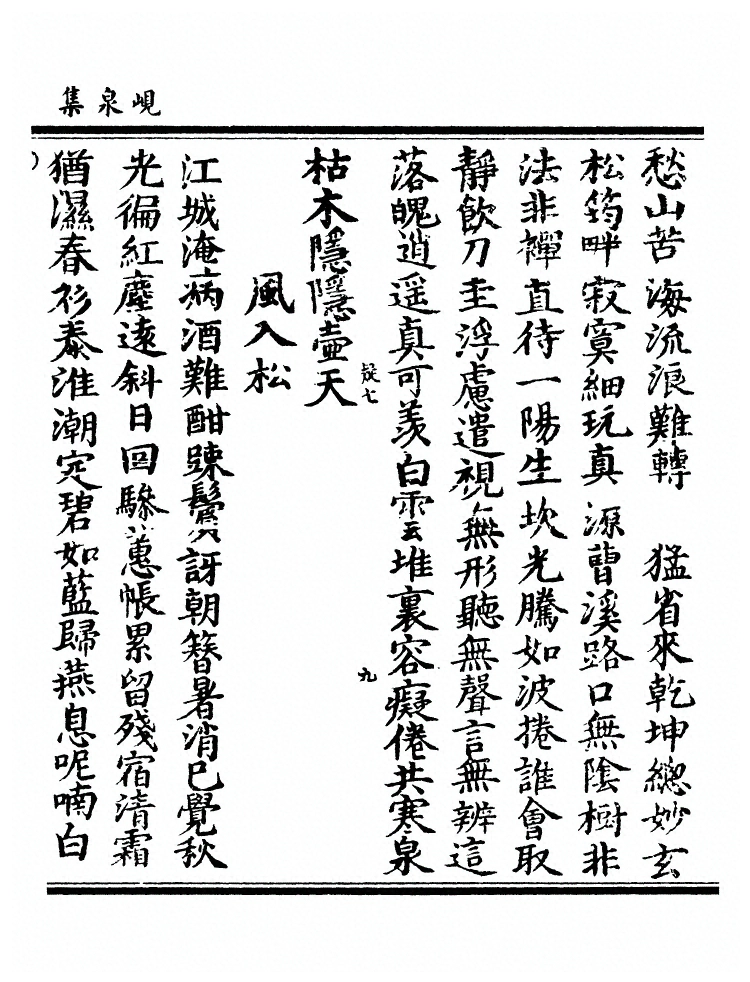 峴泉集
愁山苦海流浪難轉　猛省來乾坤總妙玄
松筠畔寂寞細玩真源曹溪路口無陰樹非
法非禪直待一陽生坎光騰如波捲誰會取
靜飲刀圭浮慮遣視無形聽無聲言無辨這
落魄逍遥真可羡白雲堆裏容癡倦共寒泉
枯木隱隱壺天
風入松
江城淹病酒難酣踈鬢訝朝簪暑消已覺秋
光徧紅塵遠斜日回驂蕙帳累留殘宿清霜
猶濕春衫秦淮潮定碧如藍歸燕息呢喃白